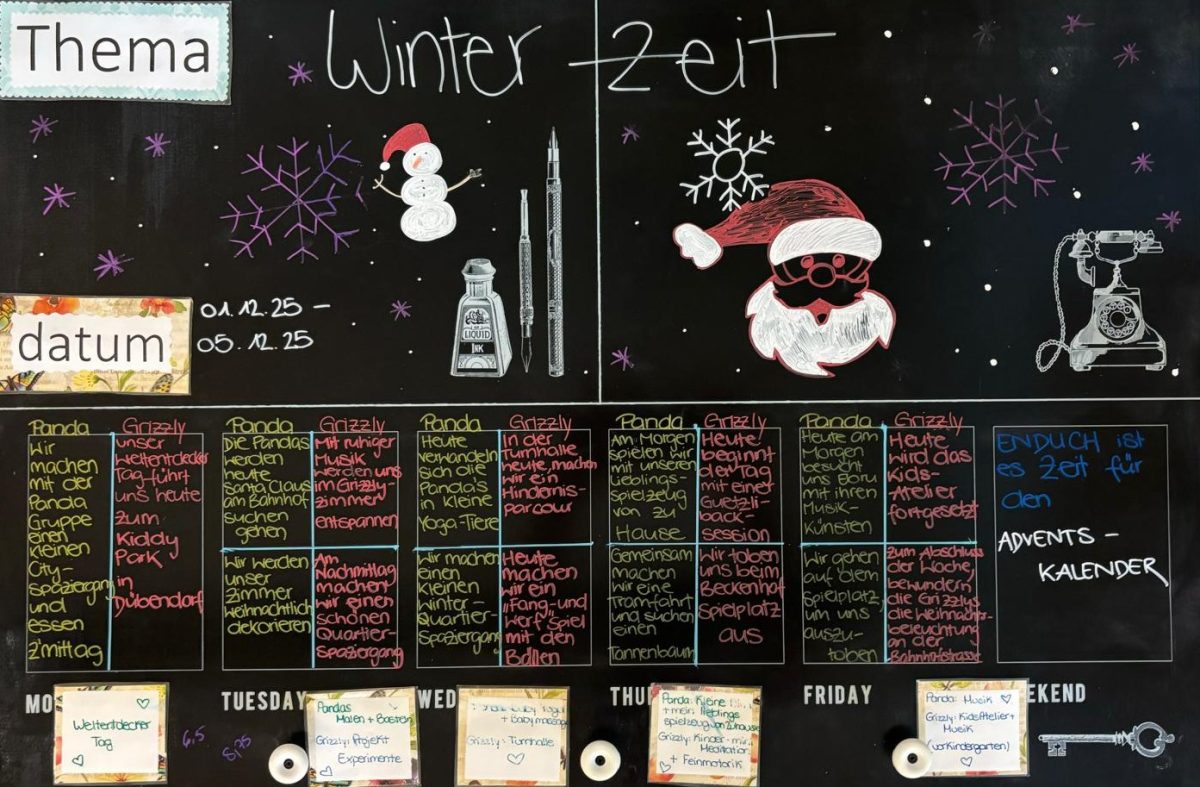 Thema
Winter Zeit
LIQUID
INK
datum
01.12.25 -
05.12.25
Panda
Wir
machen
mit der
Panda
Gruppe
einen
kleinen
City-
spaziergang
und
essen
z'mittag
Grizzly
unser
Weltentdecker
Tag führt
uns heute
zum
Kiddy
Park
in
Dübendorf
Panda
Die Pandas
werden
heute
Santa Claus
am Bahnhof
suchen
gehen
Grizzly
Mit ruhiger
Musik
werden uns
im Grizzly-
zimmer
entspannen
Wir werden
unser
Zimmer
weihnachtlich
dekorieren
Am
Nachmittag
machen
wir einen
schönen
Quartier-
spaziergang
Panda
Heute
verwandeln
sich die
Panda's
in kleine
Yoga-Tiere
Grizzly
In der
Turnhalle
heute, machen
wir ein
Hindernis-
parcour
Wir machen
einen
kleinen
Winter-
Spaziergang
Heute
machen
wir ein
"Fang-und
Werf"Spiel
mit den
Bällen
Panda
Am Morgen
spielen wir
mit unseren
Lieblings-
spielzeug
von zu
Hause
Grizzly
Heute
beginnt
der Tag
mit einer
Guetzli-
back-
session
Gemeinsam
machen
wir eine
Tramfahrt
und suchen
einen
Tannenbaum
Wir toben
uns beim
Beckenhof
Spielplatz
aus
Panda
Heute am
Morgen
besucht
uns Boru
mit ihren
Musik-
künsten
Grizzly
Heute
wird das
Kids-
Atelier
fortgesetzt
Wir gehen
auf dem
Spielplatz,
um uns
auszu-
toben
Zum Abschluss
der Woche,
bewundern
die Grizzlys
die Weihnachts-
beleuchtung
an der
Bahnhofstrasse
ENDLICH ist
es Zeit für
den
ADVENTS-
KALENDER
MO
TUESDAY
WED
THU
FRIDAY
EKEND
Weltentdecker
Tag
6,5
Pandas
Malen + Basteln
Grizzly: Projekt
Experimente
+ Babymassage
Grizzly: Turnhalle
Panda: Kleine
+ mein lieblings
spielzeug von zuhause
Grizzly: Kinder-
Meditation
+ Feinmotorik
Panda: Musik
Grizzly: KidsAtelier +
Musik
(vorkindergarten)